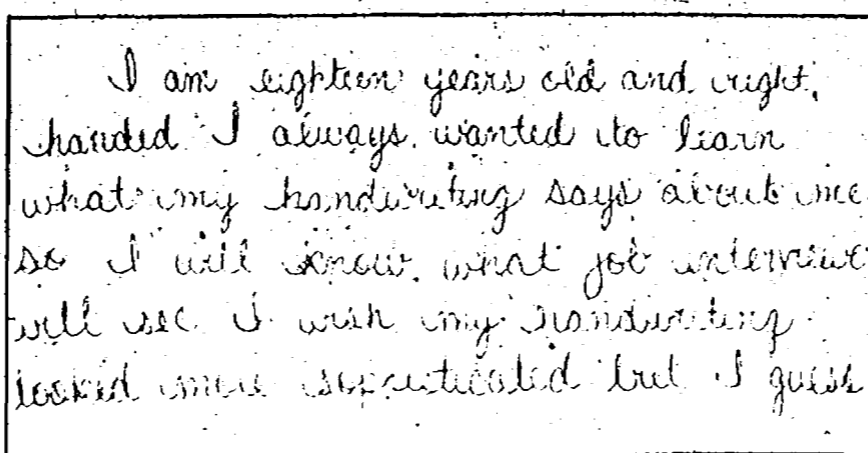 I am eighteen years old and right
handed I always wanted to learn
what my handwriting says about me
so I will know what job interviewe
will see I wish my handwriting
looked more sophisticated but I guess